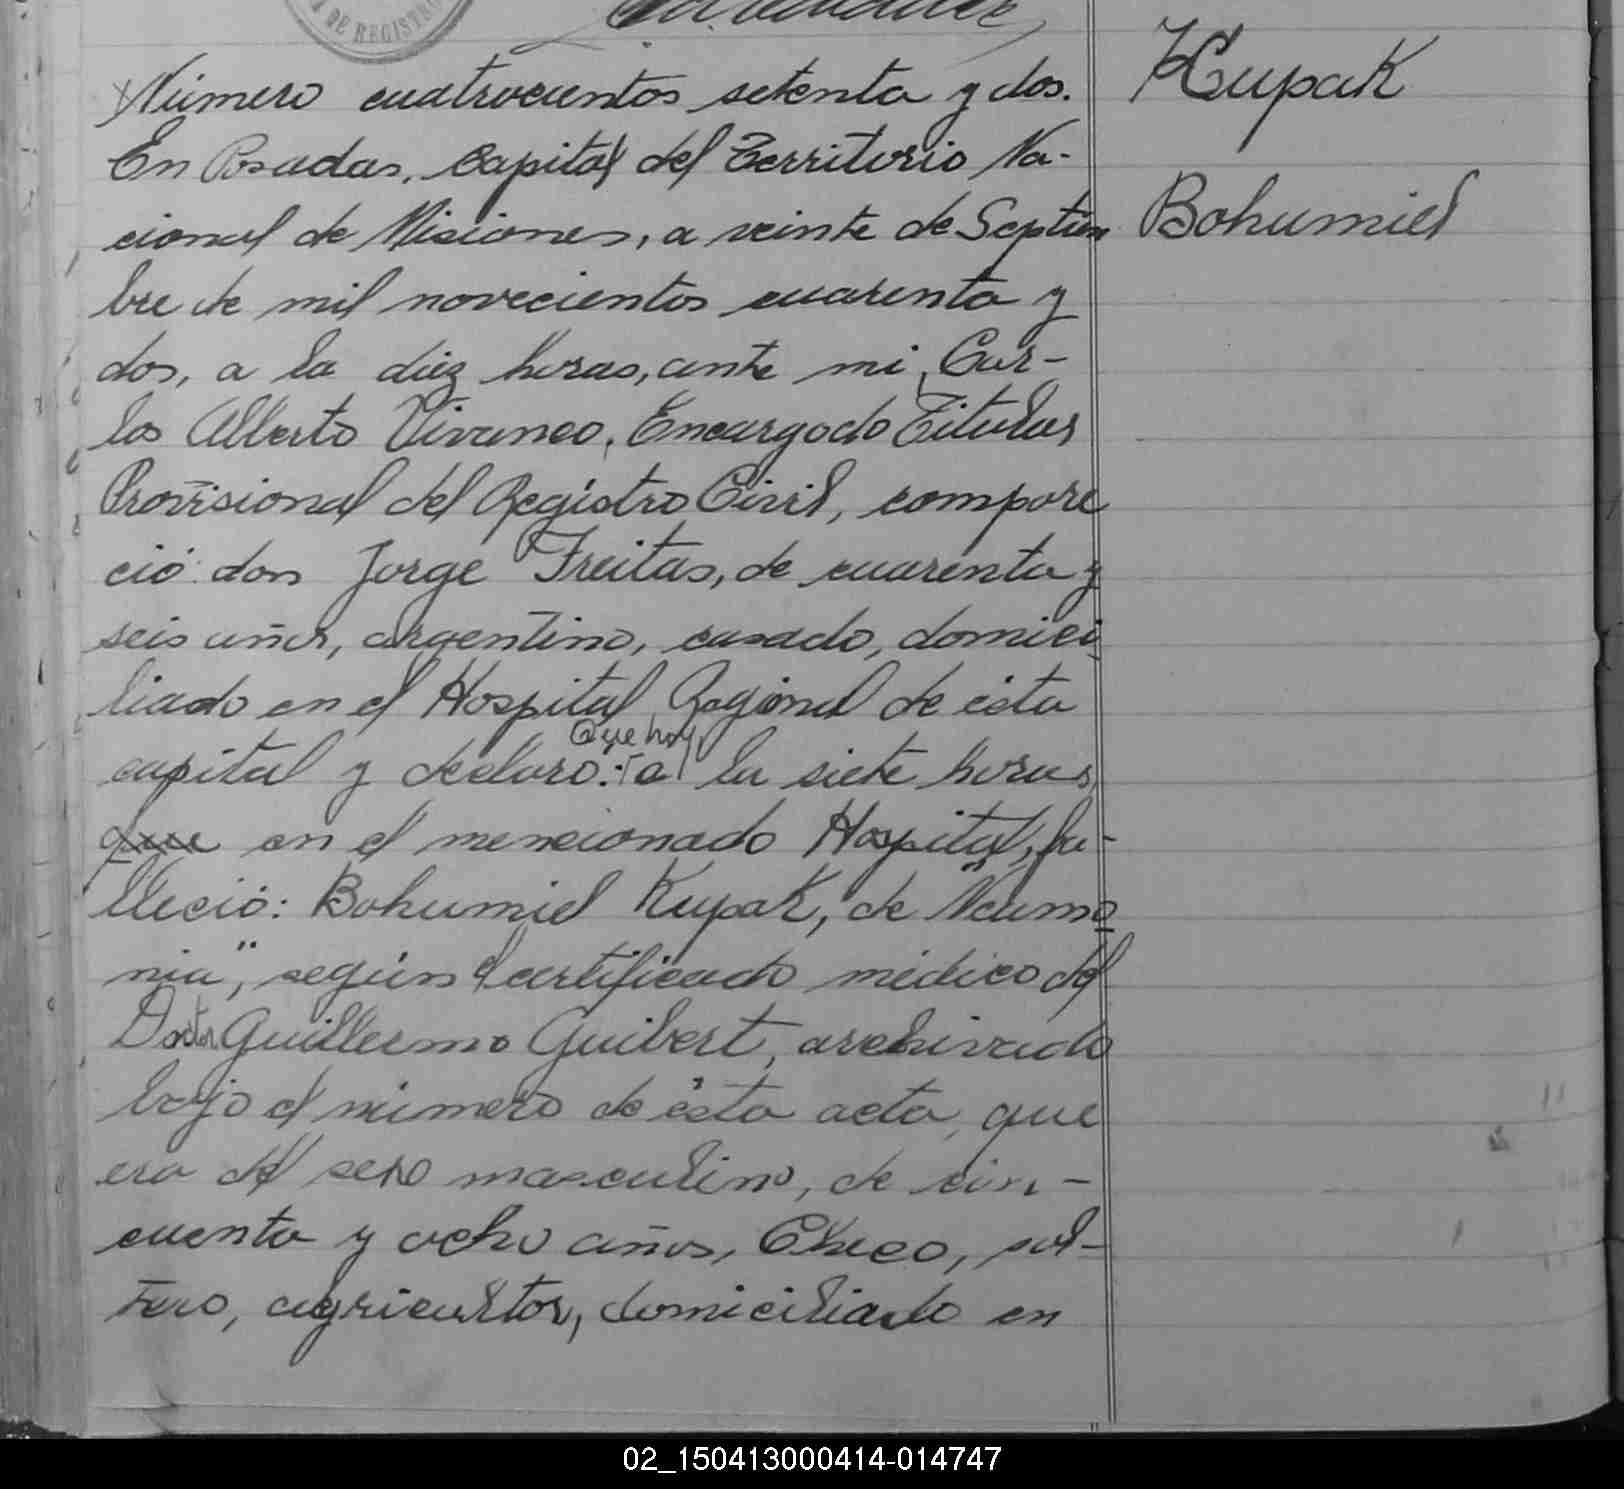 DE REGISTRO
Número cuatrocientos setenta y dos.
En Posadas, Capital del Territorio Na-
cional de Misiones, a veinte de Septiem
bre de mil novecientos cuarenta y
dos, a la diez horas, ante mi, Car-
los Alberto Vivanco, Encargado Titular
Provisional del Registro Civil, compare
ció don Jorge Freitas, de cuarenta y
seis años, argentino, casado, domici
liado en el Hospital Regional de ésta
Que hoy,
capital y declaro: a la siete horas,
que en el mencionado Hospital, fa-
lleció: Bohumiel Kupak, de "Neumo
nia", según el certificado médico del
Doctor Guillermo Guibert, archivado
bajo el número de ésta acta, que
era del sexo masculino, de cin-
cuenta y ocho años, Checo, sol-
tero, agricultor, domiciliado en
Kupak
Bohumiel
02_150413000414-014747